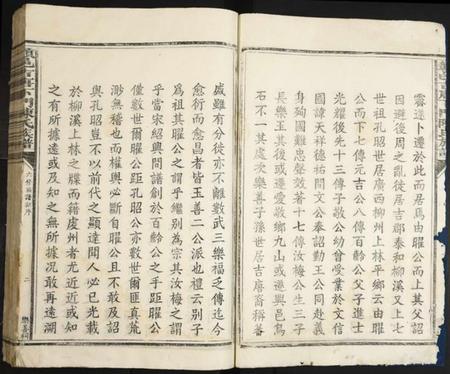 睿迷卜遷於此而居焉由曜公而上其父詔
因避後周之亂徙居吉郡泰和柳溪又上七
世祖孔昭世居廣西柳州上林平鄉云由曜
公而下七傳元吉公八傳百齡公父子進士
光耀後先十三傳子敬公幼曾受業於文信
國諱天祥德祐間文公奉詔勤王公同赴義
舟殉國難忠聲效著十七傳汝梅公生三子
長樂玉其後或遷愛敬鄉九山或遷興邑鳥
石不一其處次樂善子孫世居吉廓裔稱蕃
盛雖有分徙亦不離數武三樂福之傳仍傳
愈衍而愈昌者皆玉善二公派也禮云別子
為祖其曜公之謂乎繼別為宗其汝梅之謂
乎當宋紹興間譜創於百齡公之手距曜公
僅數世爾曜公距孔昭公亦數世爾匪真荒
渺無稽也而權輿必斷自曜公且不敢及詔
與孔昭豈不以前代之顯達間人必已光載
於柳溪上林之牒而籍虔州者尤近近或知
之有所據遠或及知之無所據況敢再遠溯
六修
二